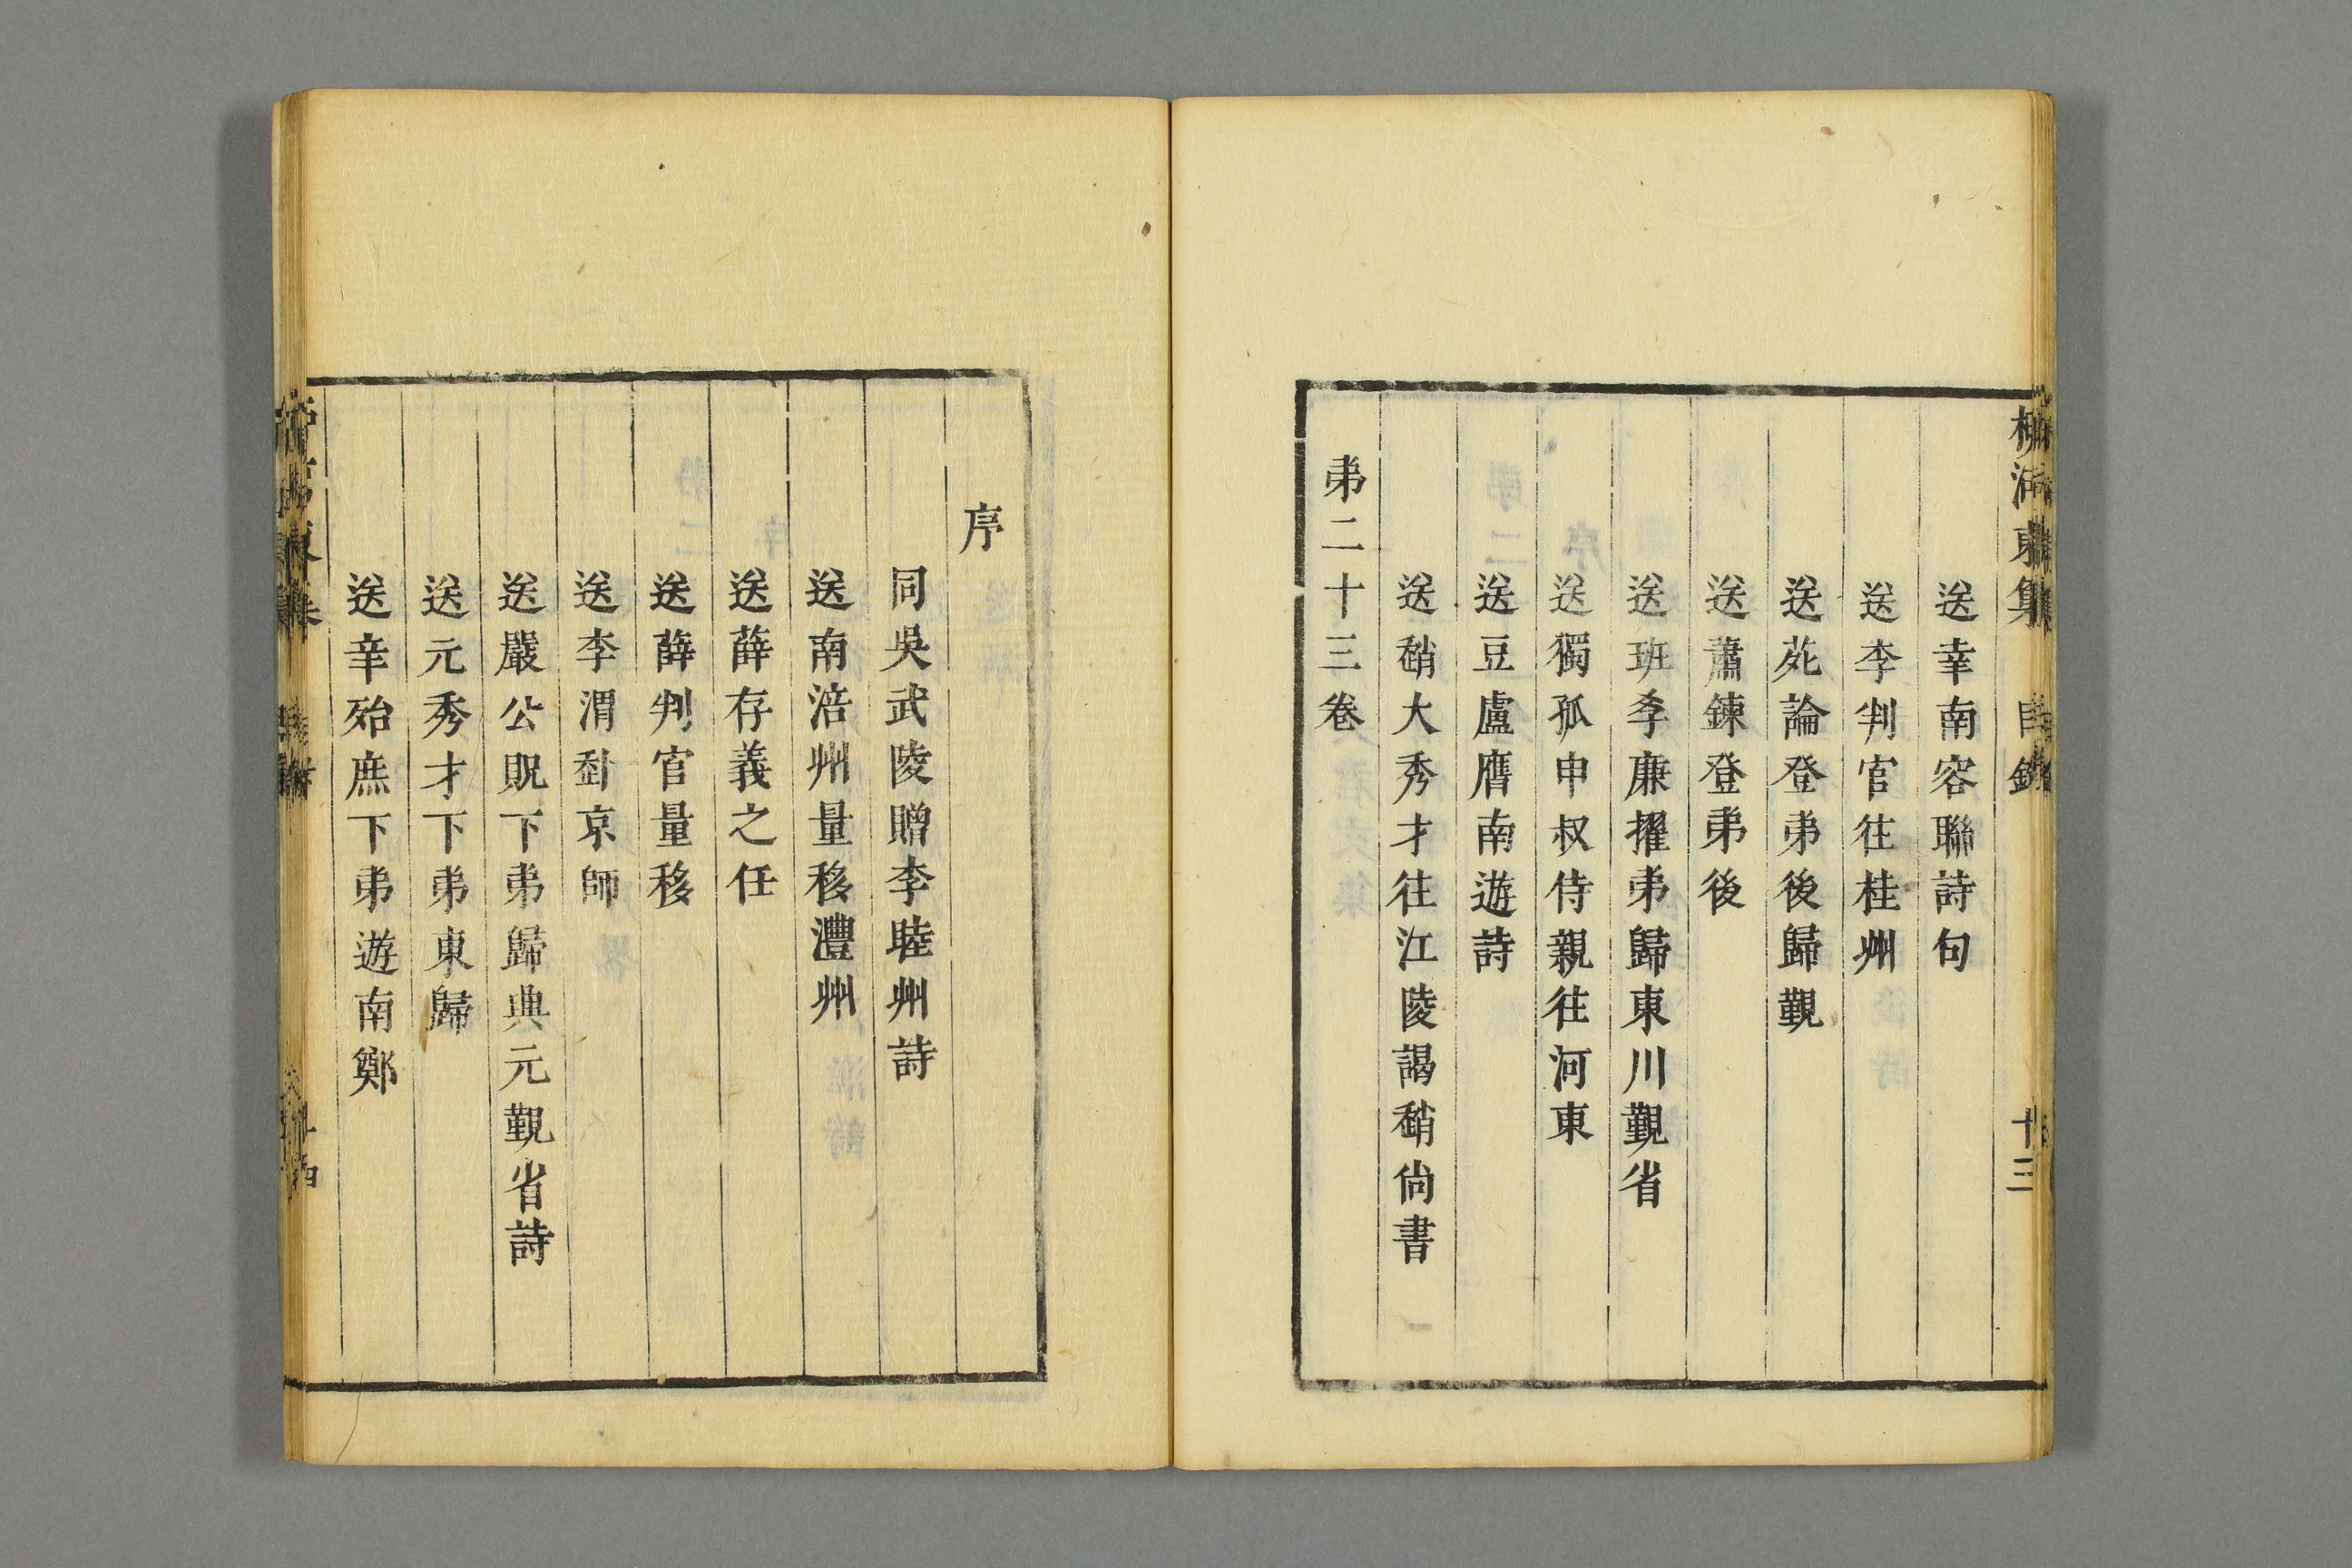 柳河東集 目錄 十三
送幸南容聯詩句
送李判官往桂州
送苑論登弟後歸覲
送蕭鍊登弟後
送班孝廉擢弟歸東川覲省
送獨孤申叔侍親往河東
送豆盧膺南遊詩
送趙大秀才往江陵謁趙尚書
弟二十三卷
序
同吳武陵贈李睦州詩
送南涪州量移澧州
送薛存義之任
送薛判官量移
送李渭赴京師
送嚴公貺下弟歸典元覲省詩
送元秀才下弟東歸
送辛殆庶下弟遊南鄭